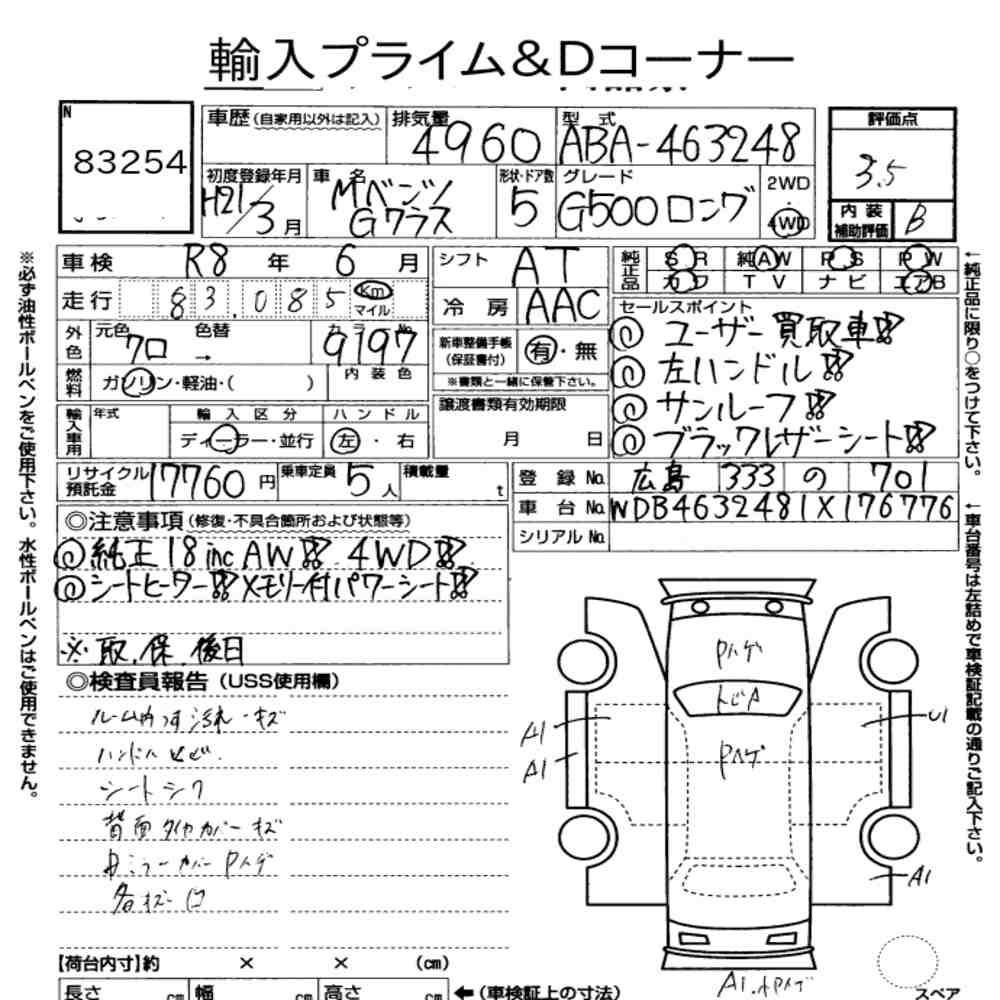 輸入プライム&Dコーナー
N
83254
車歴(自家用以外は記入)
排気量
4960
型式
ABA-463248
評価点
3.5
初度登録年月
H21/3月
車名
Mベンツ
Gクラス
形状・ドア数
5
グレード
G500ロング
2WD
4WD
内装
補助評価
B
車検 R8年 6月
シフト AT
純正品
SR 純AW PS PW
カワ TV ナビ エアB
走行 83,085 Km
マイル
冷房 AAC
セールスポイント
外色
元色 クロ
色替 →
カラーNo.
9197
新車整備手帳
(保証書付)
有・無
※書類と一緒に保管下さい。
◎ユーザー買取車!!
◎左ハンドル!!
◎サンルーフ!!
◎ブラックレザーシート!!
燃料
ガソリン・軽油・( )
内装色
輸入車用
年式
輸入区分
ディーラー・並行
ハンドル
左・右
譲渡書類有効期限
月 日
リサイクル
預託金
17760円
乗車定員
5人
積載量
t
登録No. 広島 333 の 701
車台No. WDB4632481X176776
シリアルNo.
◎注意事項(修復・不具合箇所および状態等)
◎純正18inc AW!! 4WD!!
◎シートヒーター!!メモリー付パワーシート!!
※取、保、後日
◎検査員報告(USS使用欄)
ルーム内 うす汚れ・キズ
ハンドル
シートシワ
背面タイヤカバーキズ
ミラーカバーPハゲ
Pハゲ
トビA
Pハゲ
A1
A1
U1
A1
A1
スペア
【荷台内寸】約 × × (cm)
長さ cm 幅 cm 高さ cm ←(車検証上の寸法)
※必ず油性ボールペンをご使用下さい。水性ボールペンはご使用できません。
←純正品に限り○をつけて下さい。
←車台番号は左詰めで車検証記載の通りご記入下さい。